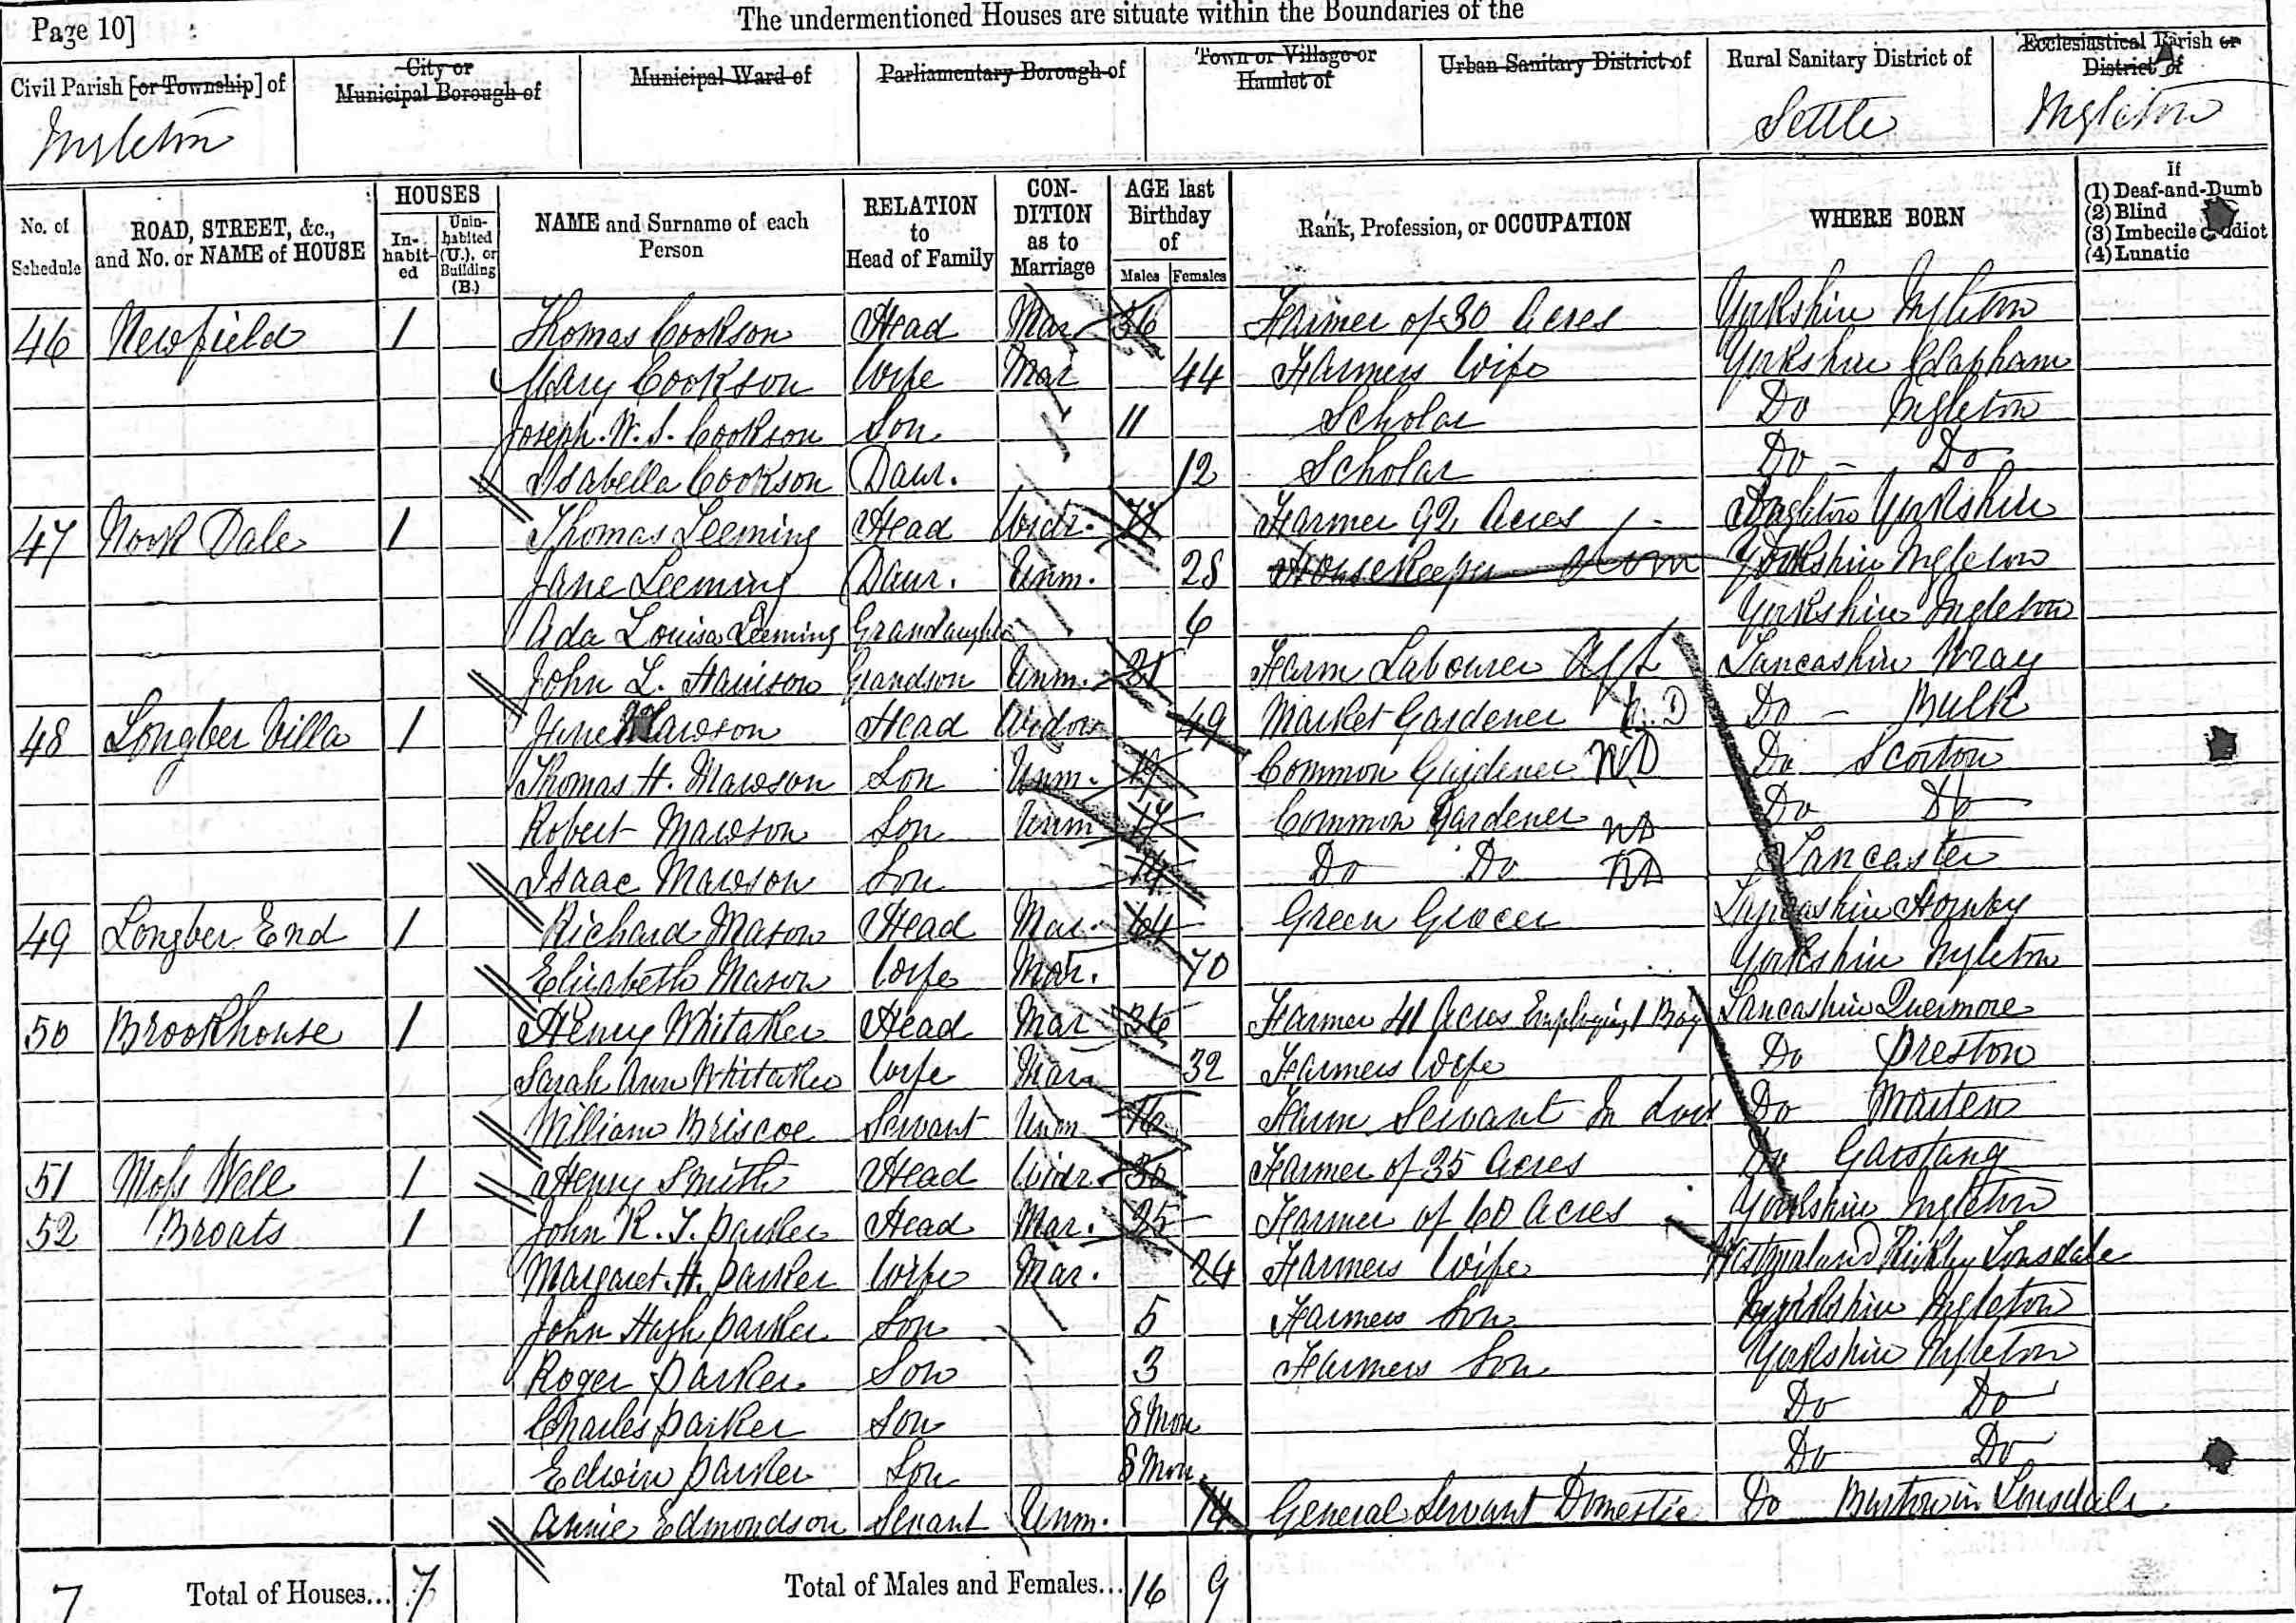 Page 10]
The undermentioned Houses are situate within the Boundaries of the
Civil Parish [or Township] of
City or Municipal Borough of
Municipal Ward of
Parliamentary Borough of
Town or Village or Hamlet of
Urban Sanitary District of
Rural Sanitary District of
Ecclesiastical Parish or District of
Ingleton Settle Ingleton
No. of Schedule
ROAD, STREET, &c., and No. or NAME of HOUSE
HOUSES
In-habit-ed
Unin-habited (U.), or Building (B.)
NAME and Surname of each Person
RELATION to Head of Family
CON-DITION as to Marriage
AGE last Birthday of
Males Females
Rank, Profession, or OCCUPATION
WHERE BORN
If
(1) Deaf-and-Dumb
(2) Blind
(3) Imbecile or Idiot
(4) Lunatic
46 Newfield 1 Thomas Cookson Head Mar 36 Farmer of 80 Acres Yorkshire Ingleton
Mary Cookson Wife Mar 44 Farmers Wife Yorkshire Clapham
Joseph. W. S. Cookson Son 11 Scholar Do Ingleton
Isabella Cookson Daur. 12 Scholar Do - Do
47 Nook Dale 1 Thomas Leeming Head Widr. 77 Farmer 92 Acres Yorkshire
Jane Leeming Daur. Unm. 28 Housekeeper Yorkshire Ingleton
Ada Louisa Leeming Grandaughter 6 Yorkshire Ingleton
John L. Harrison Grandson Unm. 21 Farm Labourer Lancashire Wray
48 Longber Villa 1 Jane Mawson Head Widow 49 Market Gardener Do - Bulk
Thomas H. Mawson Son Unm. 19 Common Gardener ND Do Scorton
Robert Mawson Son Unm 17 Common Gardener ND Do Do
Isaac Mawson Son 14 Do Do ND Lancaster
49 Longber End 1 Richard Mason Head Mar. 64 Green Grocer Lancashire Hornby
Elizabeth Mason Wife Mar. 70 Yorkshire Ingleton
50 Brookhouse 1 Henry Whitaker Head Mar 36 Farmer 41 Acres Employing 1 Boy Lancashire Quermore
Sarah Ann Whitaker Wife Mar 32 Farmers Wife Do Preston
William Briscoe Servant Unm 16 Farm Servant In door Do Marten
51 Moss Well 1 Henry Smith Head Widr 30 Farmer of 35 Acres Do Garstang
52 Broats 1 John R. T. Parker Head Mar. 25 Farmer of 60 Acres Yorkshire Ingleton
Margaret. H. Parker Wife Mar. 24 Farmers Wife Westmorland Kirkby Lonsdale
John Hugh Parker Son 5 Farmers Son Yorkshire Ingleton
Roger Parker Son 3 Farmers Son Yorkshire Ingleton
Charles Parker Son 8 Mon Do Do
Edwin Parker Son 8 Mon Do Do
Annie Edmondson Servant Unm. 14 General Servant Domestic Do Burton in Lonsdale
7 Total of Houses... 7 Total of Males and Females... 16 9